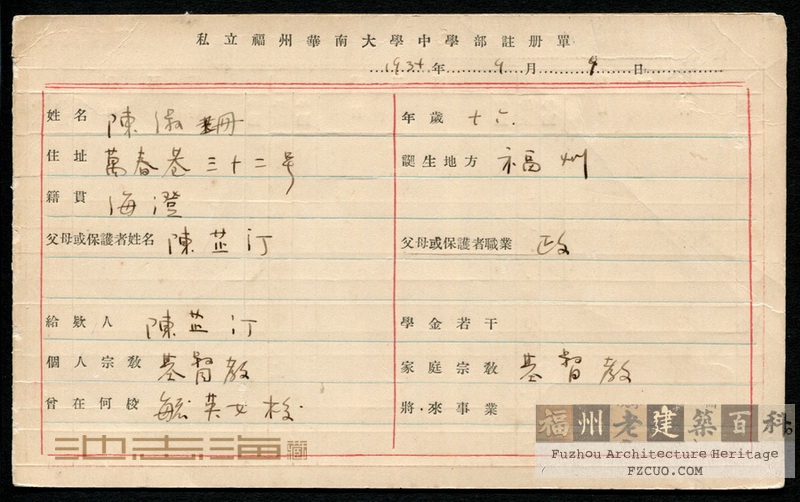 私立福州華南大學中學部註册單
1934年9月9日
姓名 陳淑珊
年歲 十六
住址 萬春巷三十二号
誕生地方 福州
籍貫 海澄
父母或保護者姓名 陳芷汀
父母或保護者職業 政
給欵人 陳芷汀
學金若干
個人宗教 基督教
家庭宗教 基督教
曾在何校 毓英女校
將來事業
池志海藏
福州老建築百科
Fuzhou Architecture Heritage
FZCUO.COM